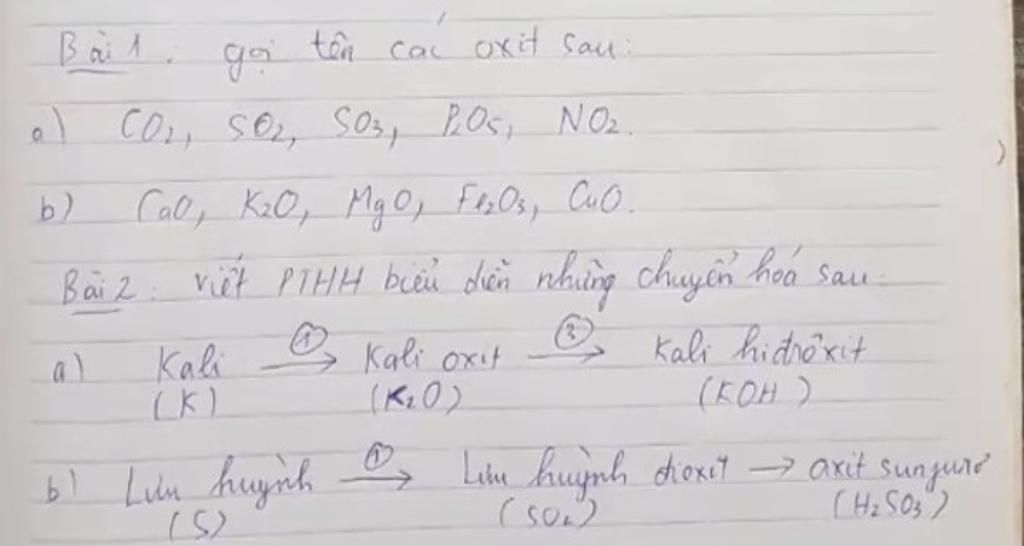 Bài 1. gọi tên các oxit sau:
a) CO2, SO2, SO3, P2O5, NO2.
b) CaO, K2O, MgO, Fe2O3, CuO.
Bài 2: viết PTHH biểu diễn những chuyển hoá sau:
a) Kali —①→ Kali oxit —②→ Kali hiđrôxit
(K) (K2O) (KOH)
b) Lưu huỳnh —①→ Lưu huỳnh đioxit → axit sunfurơ
(S) (SO2) (H2SO3)